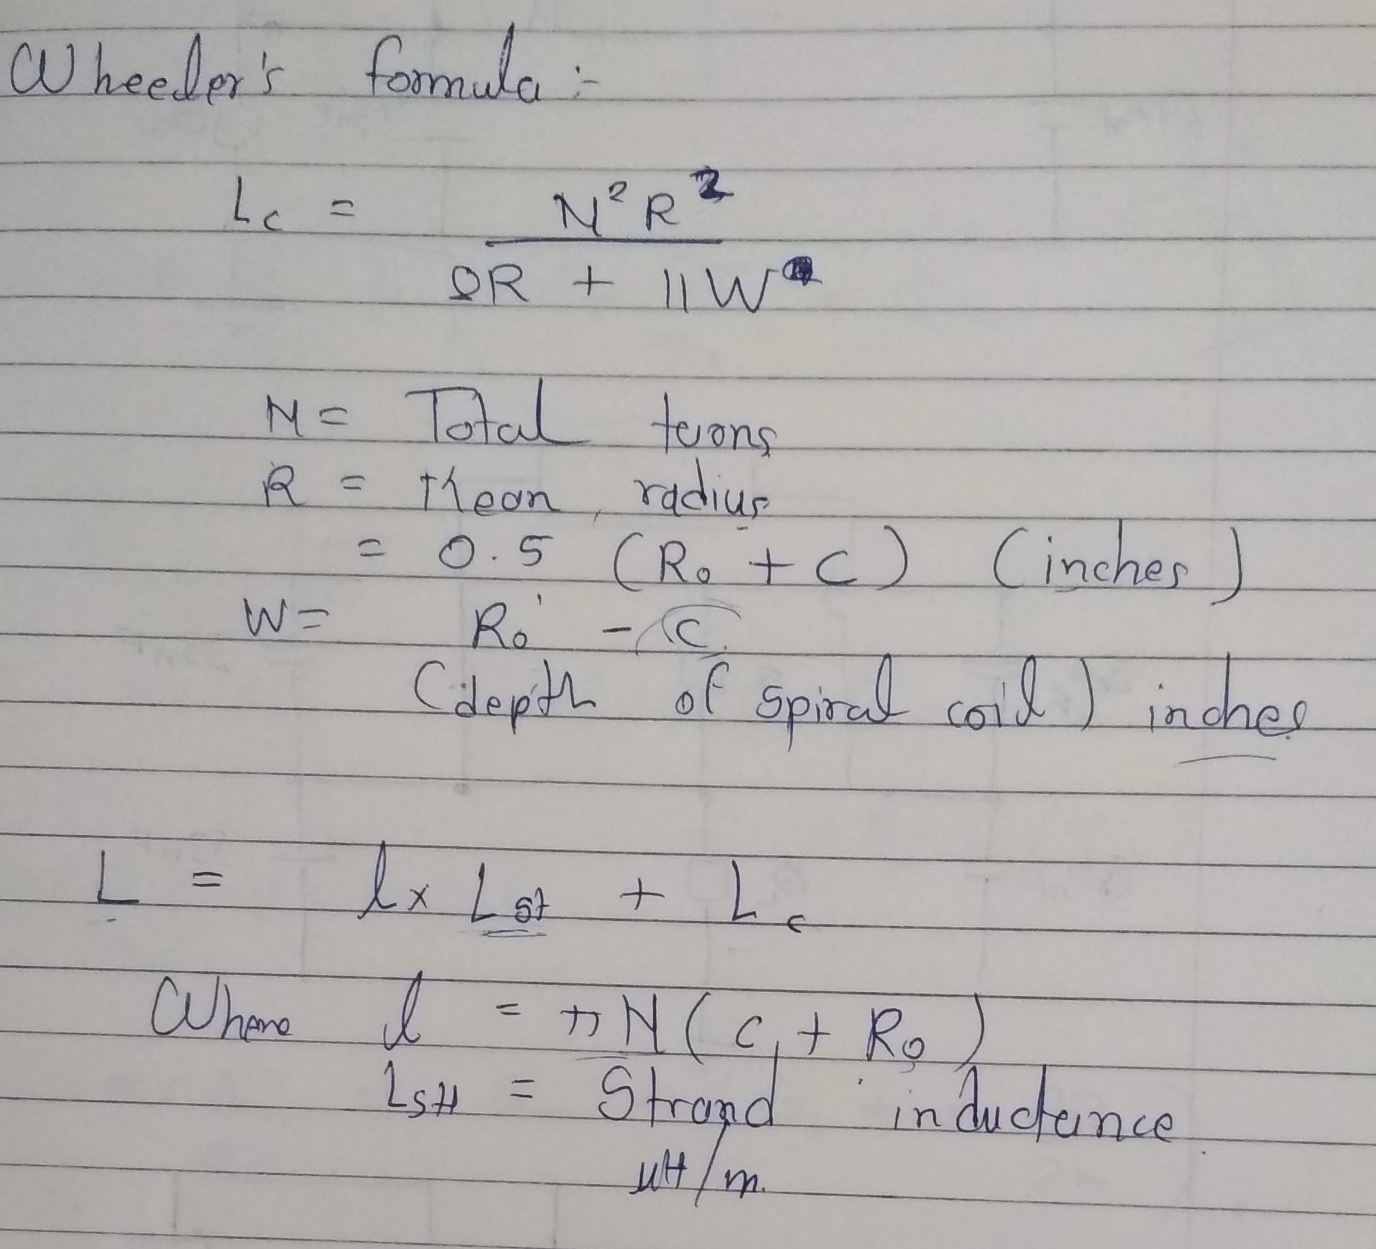 Wheeler's formula :-
Lc = N²R² / 8R + 11W
N = Total turns
R = Mean radius
= 0.5 (Ro + C) (inches)
W = Ro - C
(depth of spiral coil) inches
L = l x Lst + Lc
Where l = πN(C + Ro)
Lst = Strand inductance
µH/m.